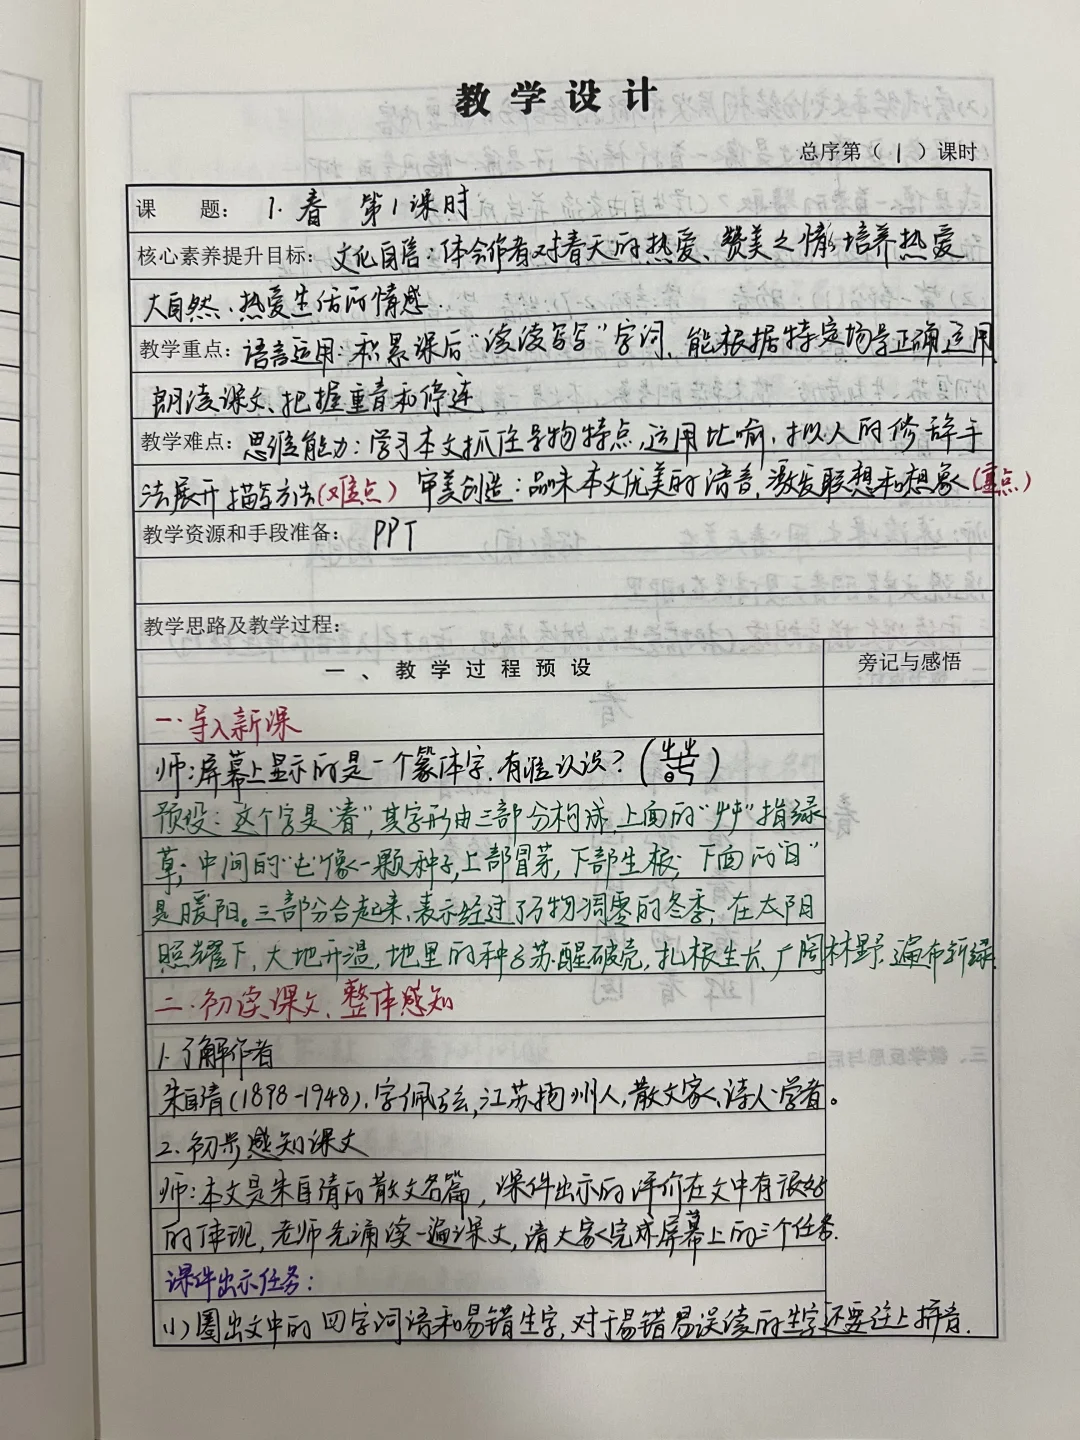 教学设计
总序第（1）课时
课 题：1.春 第1课时
核心素养提升目标：文化自信：体会作者对春天的热爱、赞美之情，培养热爱
大自然、热爱生活的情感.
教学重点：语言运用：积累课后“读读写写”字词，能根据特定场景正确运用
朗读课文、把握重音和停连
教学难点：思维能力：学习本文抓住景物特点，运用比喻，拟人的修辞手
法展开描写方法(难点) 审美创造：品味本文优美的语音，激发联想和想象(重点)
教学资源和手段准备：PPT
教学思路及教学过程：
一、教学过程预设
旁记与感悟
一.导入新课
师：屏幕上显示的是一个篆体字，有谁认识？( )
预设：这个字是“春”，其字形由三部分构成，上面的“艸”指绿
草；中间的“屯”像一颗种子，上部冒芽，下部生根；下面的“日”
是暖阳。三部分合起来，表示经过了万物凋零的冬季，在太阳
照耀下，大地开温，地里的种子苏醒破壳，扎根生长，广阔林野，遍布新绿.
二.初读课文、整体感知
1.了解作者
朱自清(1898-1948)，字佩弦，江苏扬州人，散文家、诗人、学者。
2.初步感知课文
师：本文是朱自清的散文名篇，课件出示的评价在文中有很好
的体现，老师先诵读一遍课文，请大家完成屏幕上的三个任务.
课件出示任务：
(1)圈出文中的四字词语和易错生字，对于易错易误读的生字还要注上拼音.